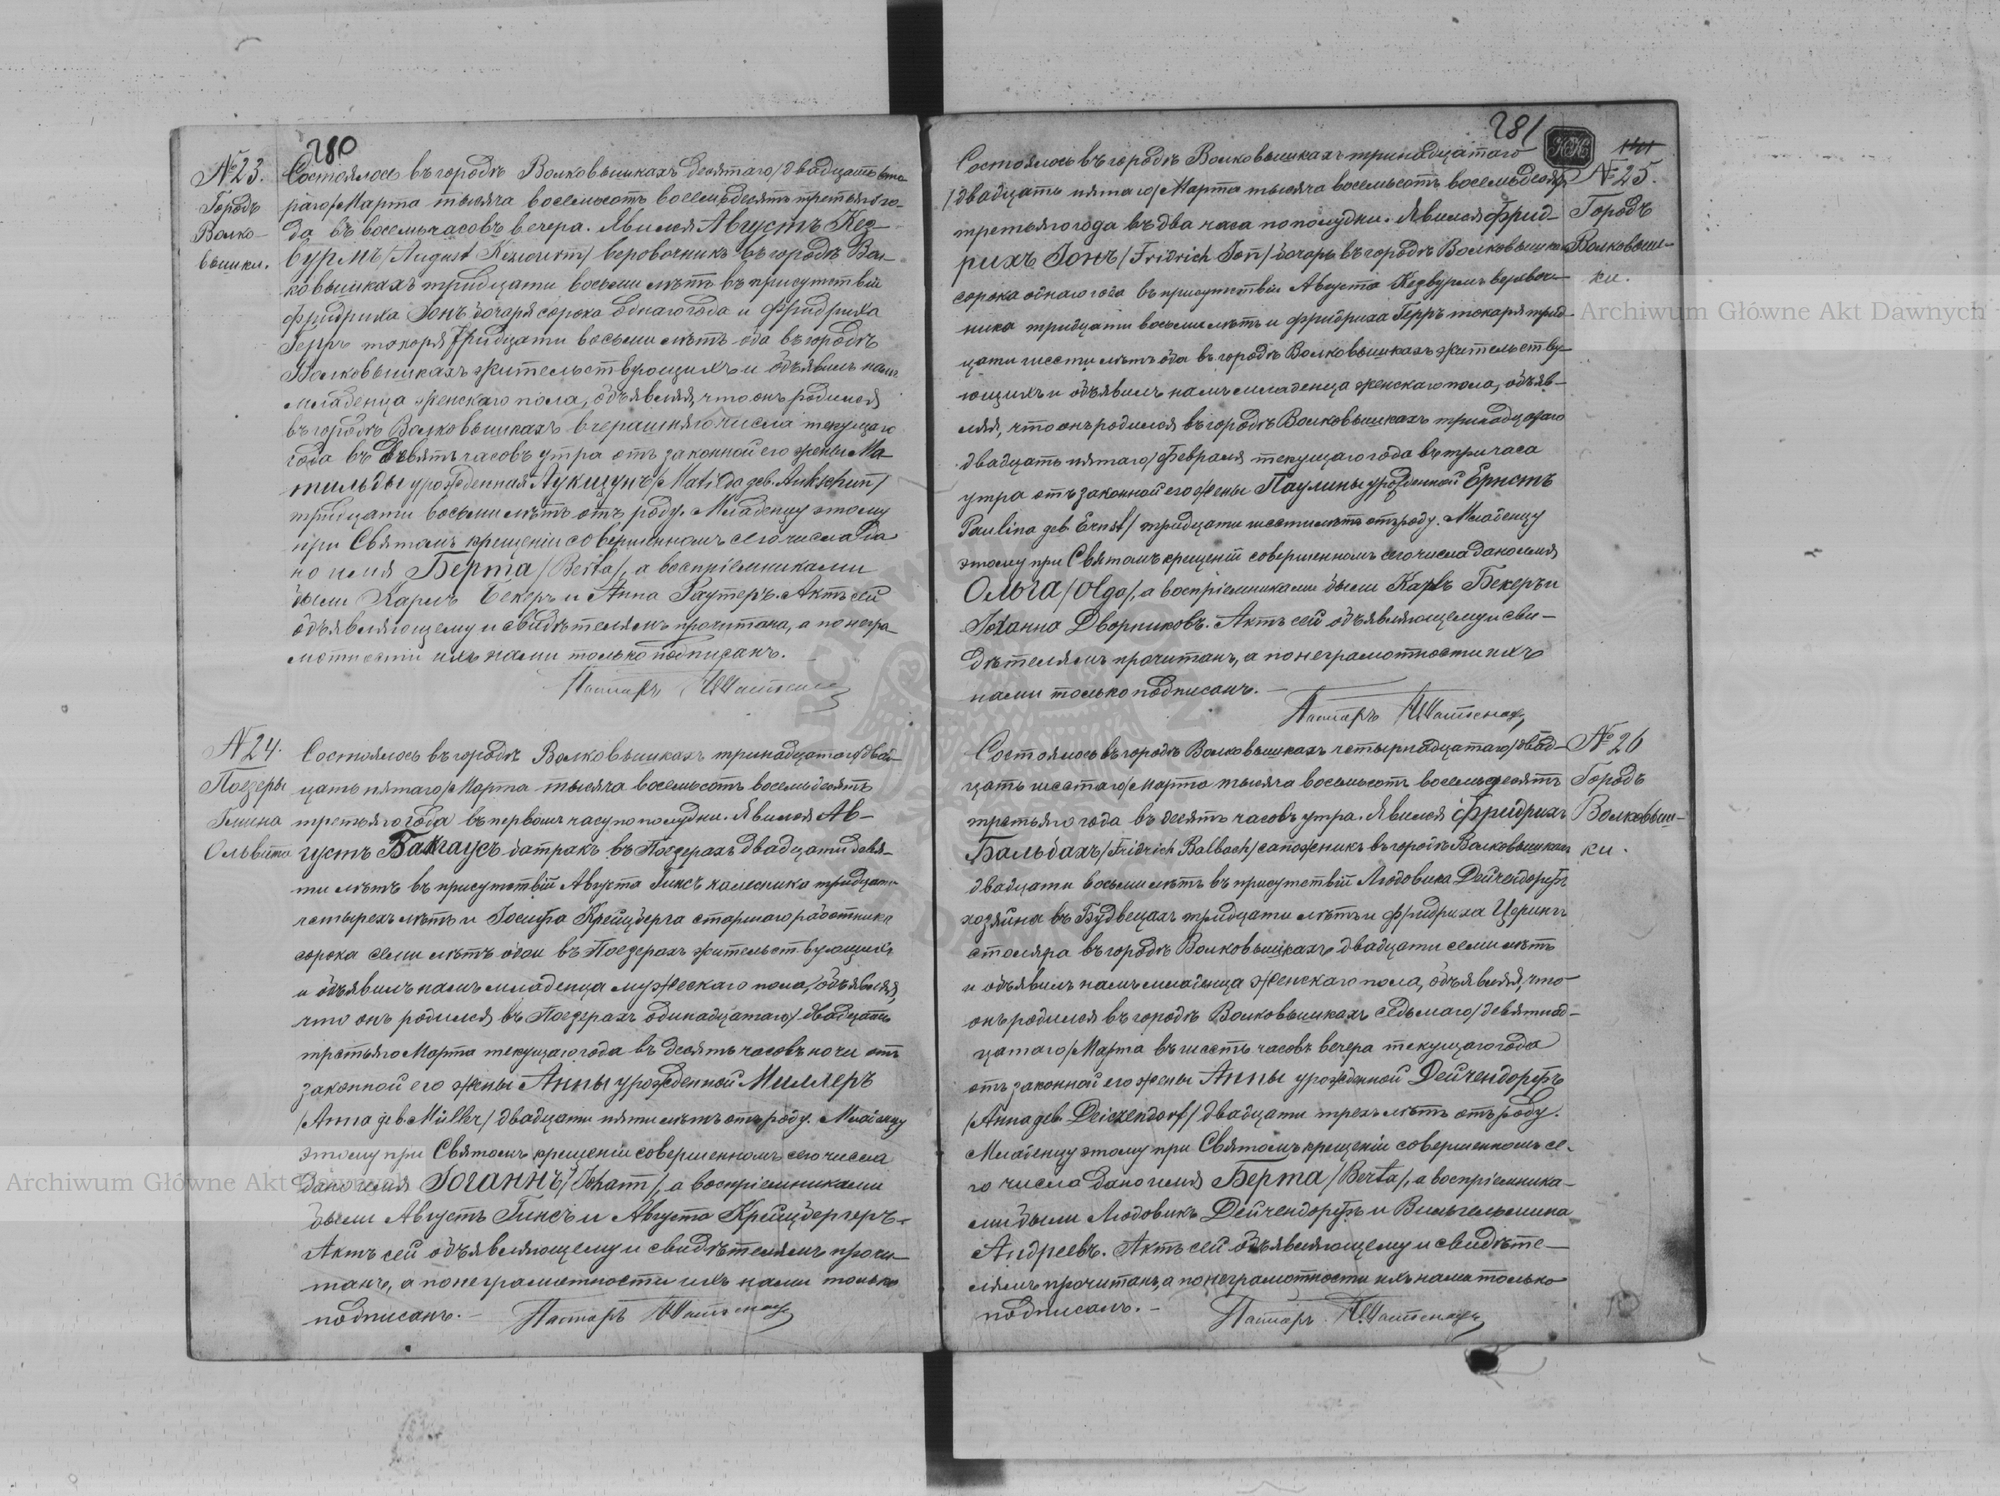 280
№ 23.
Городъ
Волко-
вышки.
Состоялось въ городѣ Волковышкахъ десятаго/двадцать вто-
раго/Марта тысяча восемьсотъ восемьдесятъ третьяго го-
да въ восемь часовъ вечера. Явился Августъ Кез-
вурмъ /August Kiswurm/ веровочникъ въ городѣ Вол-
ковышкахъ тридцати восьми лѣтъ въ присутствіи
Фридриха Іонъ бочаря сорока однаго года и Фридриха
Герръ токаря тридцати восьми лѣтъ оба въ городѣ
Волковышкахъ жительствующихъ и объявилъ намъ
младенца женскаго пола, объявляя, что онъ родился
въ городѣ Волковышкахъ вчерашняго числа текущаго
года въ девять часовъ утра отъ законной его жены Ма-
тильды урожденная Аукщунъ /Matilda дев. Aukschun/
тридцати восьми лѣтъ отъ роду. Младенцу этому
при Святомъ крещеніи совершенномъ сего числа да-
но имя Берта /Berta/, а воспріемниками
были Карлъ Бекеръ и Анна Раутеръ. Актъ сей
объявляющему и свидѣтелямъ прочитана, а по негра-
мотности ихъ нами только подписанъ.
Пасторъ
№ 24.
Поезеры
Гмина
Ольвита
Состоялось въ городѣ Волковышкахъ тринадцатаго/двад-
цать пятаго/Марта тысяча восемьсотъ восемьдесятъ
третьяго года въ первомъ часу по полудни. Явился Ав-
густъ Бакгаусъ батракъ въ Поезерахъ двадцати девя-
ти лѣтъ въ присутствіи Августа Гинсъ калесника тридцати
четырехъ лѣтъ и Іосифа Крейцберга старшаго работника
сорока семи лѣтъ обои въ Поезерахъ жительствующихъ
и объявилъ намъ младенца мужескаго пола, объявляя,
что онъ родился въ Поезерахъ одинадцатаго/двадцать
третьяго Марта текущаго года въ десять часовъ ночи отъ
законной его жены Анны урожденной Миллеръ
/Anna дев. Müller/ двадцати пяти лѣтъ отъ роду. Младенцу
этому при Святомъ крещеніи совершенномъ сего числа
дано имя Іоганнъ /Johann/, а воспріемниками
были Августъ Гинсъ и Августа Крейцбергеръ.
Актъ сей объявляющему и свидѣтелямъ прочи-
танъ, а по неграмотности ихъ нами только
подписанъ.
Пасторъ
281
№ 25.
Городъ
Волковыш-
ки.
Состоялось въ городѣ Волковышкахъ тринадцатаго
/двадцать пятаго/Марта тысяча восемьсотъ восемьдесятъ
третьяго года въ два часа по полудни. Явился Фрид-
рихъ Іонъ /Fridrich Jon/ бочарь въ городѣ Волковышкахъ
сорока однаго года въ присутствіи Августа Кедвурмъ веровоч-
ника тридцати восьми лѣтъ и Фридриха Герръ токаря трид-
цати шести лѣтъ оба въ городѣ Волковышкахъ жительству-
ющихъ и объявилъ намъ младенца женскаго пола, объяв-
ляя, что онъ родился въ городѣ Волковышкахъ тринадцатаго
двадцать пятаго/Февраля текущаго года въ три часа
утра отъ законной его жены Паулины урожденной Ернстъ
Paulina дев. Ernst/ тридцати шести лѣтъ отъ роду. Младенцу
этому при Святомъ крещеніи совершенномъ сего числа дано имя
Ольга /Olga/, а воспріемниками были Карлъ Бекеръ и
Іоганна Дворниковъ. Актъ сей объявляющему и сви-
дѣтелямъ прочитанъ, а по неграмотности ихъ
нами только подписанъ.
Пасторъ
№ 26
Городъ
Волковыш-
ки.
Состоялось въ городѣ Волковышкахъ четырнадцатаго/двад-
цать шестаго/Марта тысяча восемьсотъ восемьдесятъ
третьяго года въ десять часовъ утра. Явился Фридрихъ
Бальбахъ /Fridrich Balbach/ сапожникъ въ городѣ Волковышкахъ
двадцати восьми лѣтъ въ присутствіи Людовика Дейчендорфъ
хозяина въ Будвецахъ тридцати лѣтъ и Фридриха Церинъ
столяра въ городѣ Волковышкахъ двадцати семи лѣтъ
и объявилъ намъ младенца женскаго пола, объявляя, что
онъ родился въ городѣ Волковышкахъ седьмаго/девятнад-
цатаго/Марта въ шесть часовъ вечера текущаго года
отъ законной его жены Анны урожденной Дейчендорфъ
/Anna дев. Deiczendorf/ двадцати трехъ лѣтъ отъ роду.
Младенцу этому при Святомъ крещеніи совершенномъ се-
го числа дано имя Берта /Berta/, а воспріемника-
ми были Людовикъ Дейчендорфъ и Вильгельмина
Андреевъ. Актъ сей объявляющему и свидѣте-
лямъ прочитанъ, а по неграмотности ихъ нами только
подписанъ.
Пасторъ
Archiwum Główne Akt Dawnych
Archiwum Główne Akt Dawnych